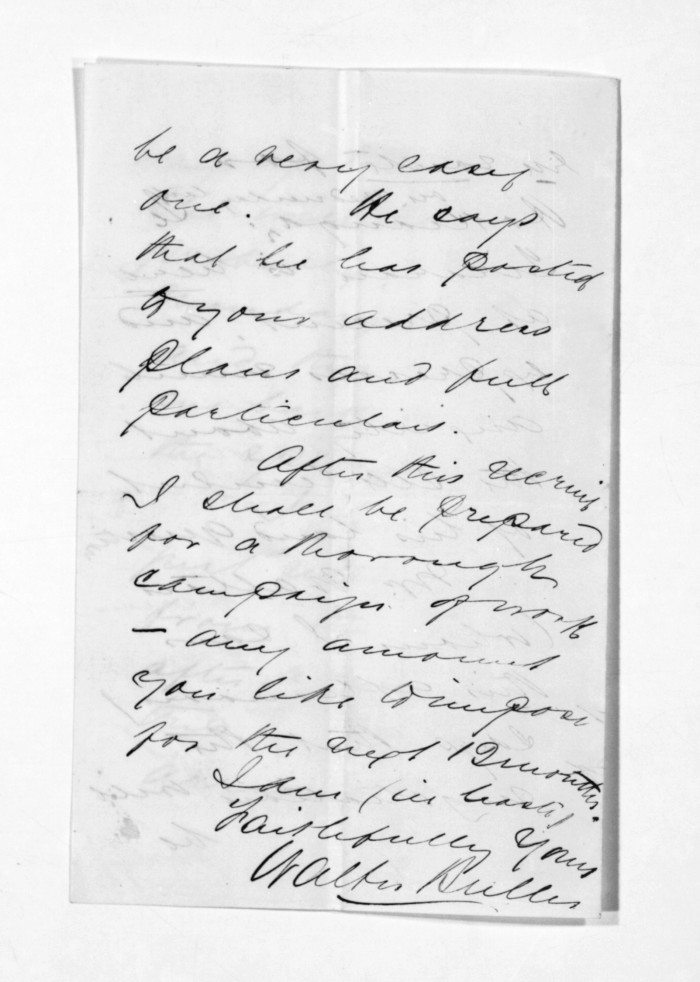 be a very easy
one. He says
that he has posted
to your address
plans and full
particulars.
After this
I shall be prepared
for a thorough
campaign of work
– any amount
you like to impose
for the next 12 months.
I am (in haste)
Faithfully Yours
Walter Buller